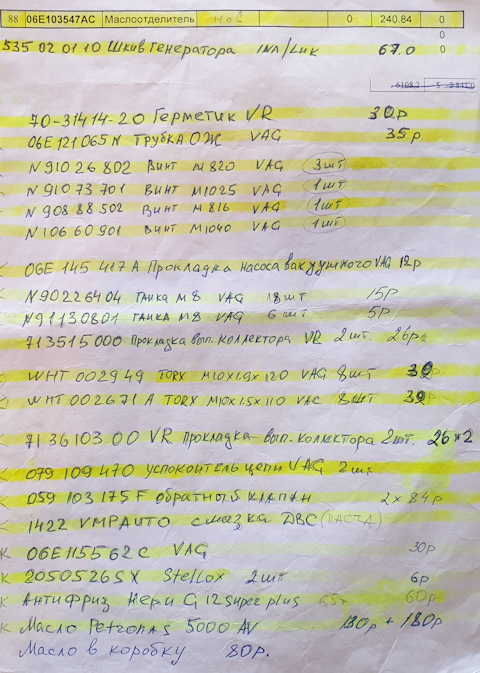 88 06E103547AC Маслоотделитель Нов 0 240.84 0
0
535 02 01 10 Шкив генератора INA/Luk 67.0 0
6108.2 5 2 841.0
70-31414-20 Герметик VR 30р
06E 121 065 N Трубка ОЖ VAG 35р.
N 910 26 802 Винт M820 VAG 3шт
N 910 73 701 Винт M1025 VAG 1шт
N 908 88 502 Винт M816 VAG 1шт
N 106 60 901 Винт M1040 VAG 1шт
06E 145 417 A Прокладка насоса вакуумного VAG 12р
N 90226404 гайка M8 VAG 18шт 15р
N 91130801 гайка M8 VAG 6шт 5р
713515000 Прокладка вып. коллектора VR 2шт. 26р
WHT 002949 TORX M10x1.9x120 VAG 8шт
WHT 002671 A TORX M10x1.5x110 VAG 8шт
71 36103 00 VR прокладка вып. коллектора 2шт. 26*2
079 109 470 успокоитель цепи VAG 2шт
059 103 175 F обратный клапан 2 x 84р
1422 VMPAUTO смазка ДВС (паста)
K 06E115562 C VAG 30р
K 2050526SX Stellox 2шт 6р
K Антифриз Hepu G12 super plus 60р
K Масло Petronas 5000 AV 180р + 180р
Масло в коробку 80р.